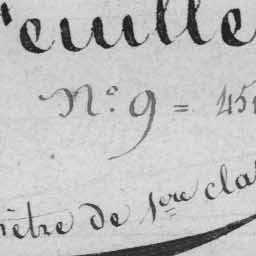 euille
N.º 9 = 45
être de 1ere cla